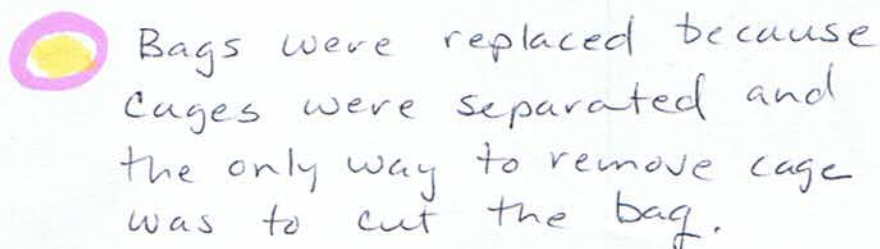 Bags were replaced because
Cages were separated and
the only way to remove cage
was to cut the bag.